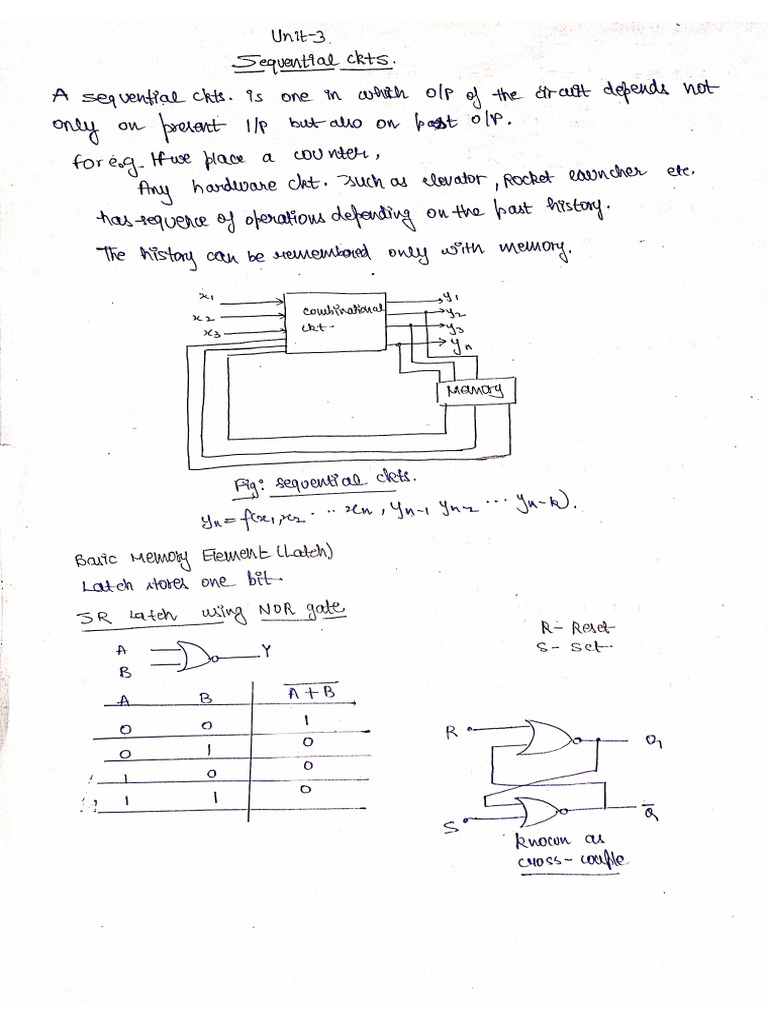 Unit-3
Sequential ckts.
A sequential ckts. is one in which o/p of the circuit depends not
only on present I/p but also on past o/p.
for e.g. If we place a counter,
Any hardware ckt. such as elevator, Rocket launcher etc.
has sequence of operations depending on the past history.
The history can be remembered only with memory.
x1 y1
x2 combinational y2
x3 ckt- y3
yn
Memory
Fig: sequential ckts.
yn = f(x1, x2 . .. xn, yn-1 yn-2 ... yn-k).
Basic Memory Element (Latch)
Latch stores one bit.
SR Latch using NOR gate
R- Reset
S- Set.
A Y
B
A B A + B
0 0 1
0 1 0
1 0 0
1 1 0
R
S Q̅
known as
cross-couple